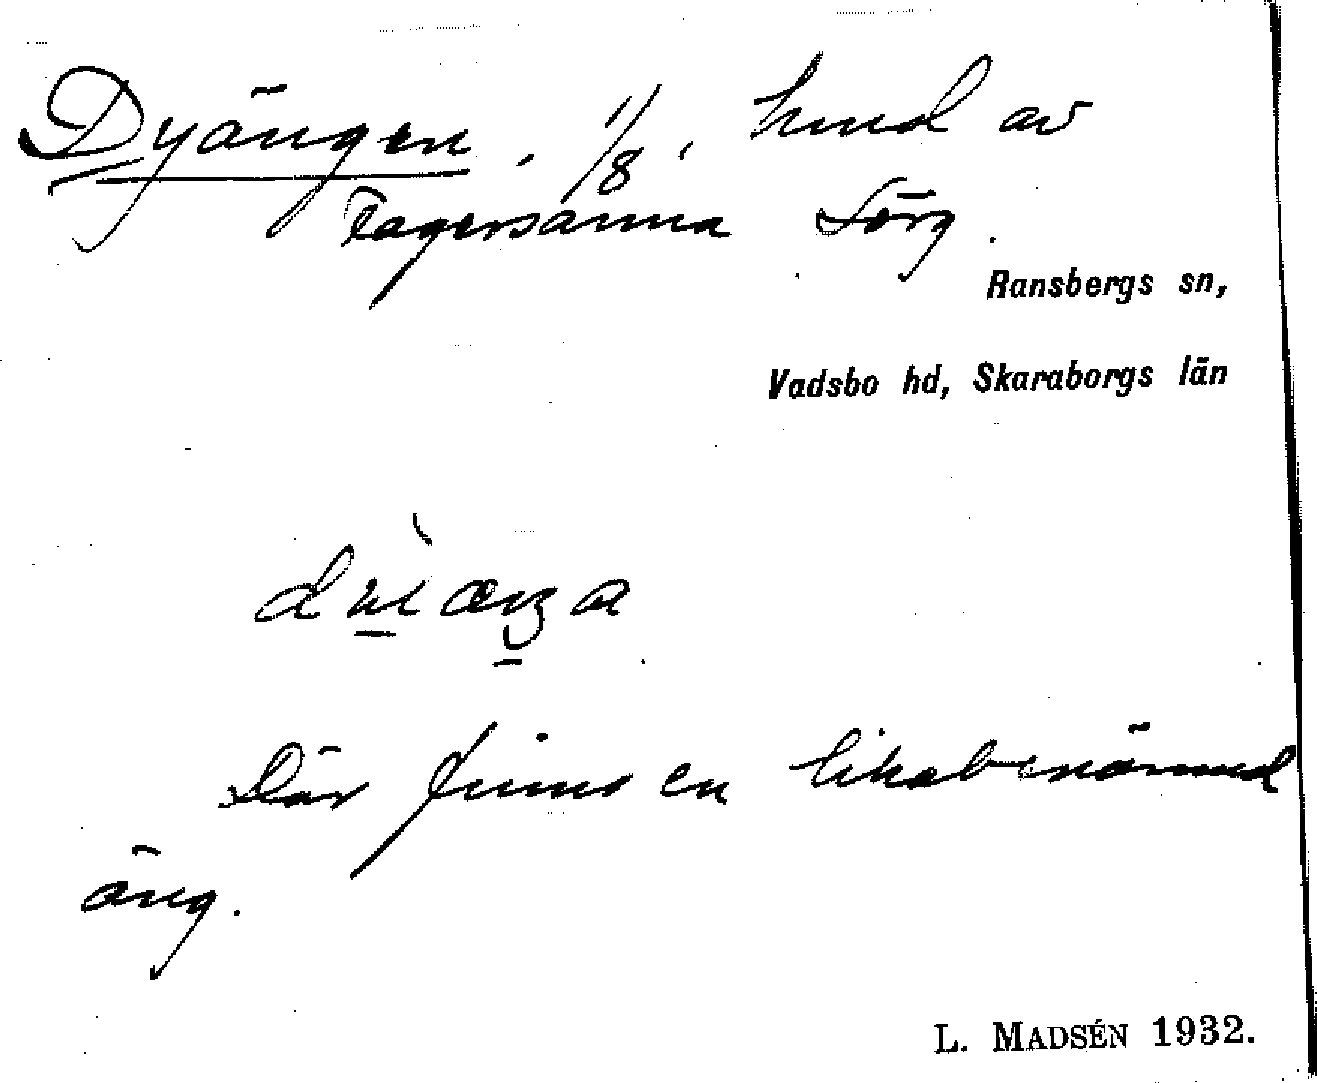 Dyängen. 1/8, hmd av
Fagersanna Sörg.
Ransbergs sn,
Vadsbo hd, Skaraborgs län
Där finns en likabenämnd
äng.
L. MADSÉN 1932.